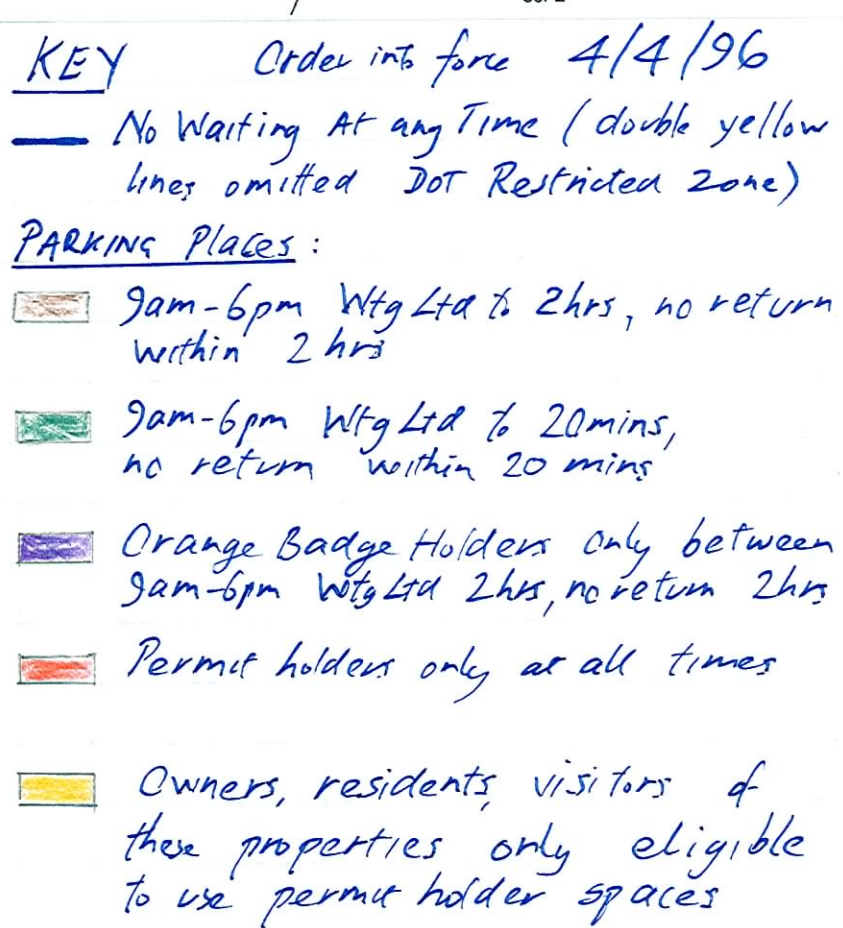 KEY Order into force 4/4/96
No Waiting At any Time (double yellow
lines omitted DOT Restricted Zone)
PARKING Places:
9am-6pm Wtg Ltd to 2hrs, no return
within 2 hrs
9am-6pm Wtg Ltd to 20mins,
no return within 20 mins
Orange Badge Holders only between
9am-6pm Wtg Ltd 2hrs, no return 2hrs
Permit holders only at all times
Owners, residents, visitors of
these properties only eligible
to use permit holder spaces